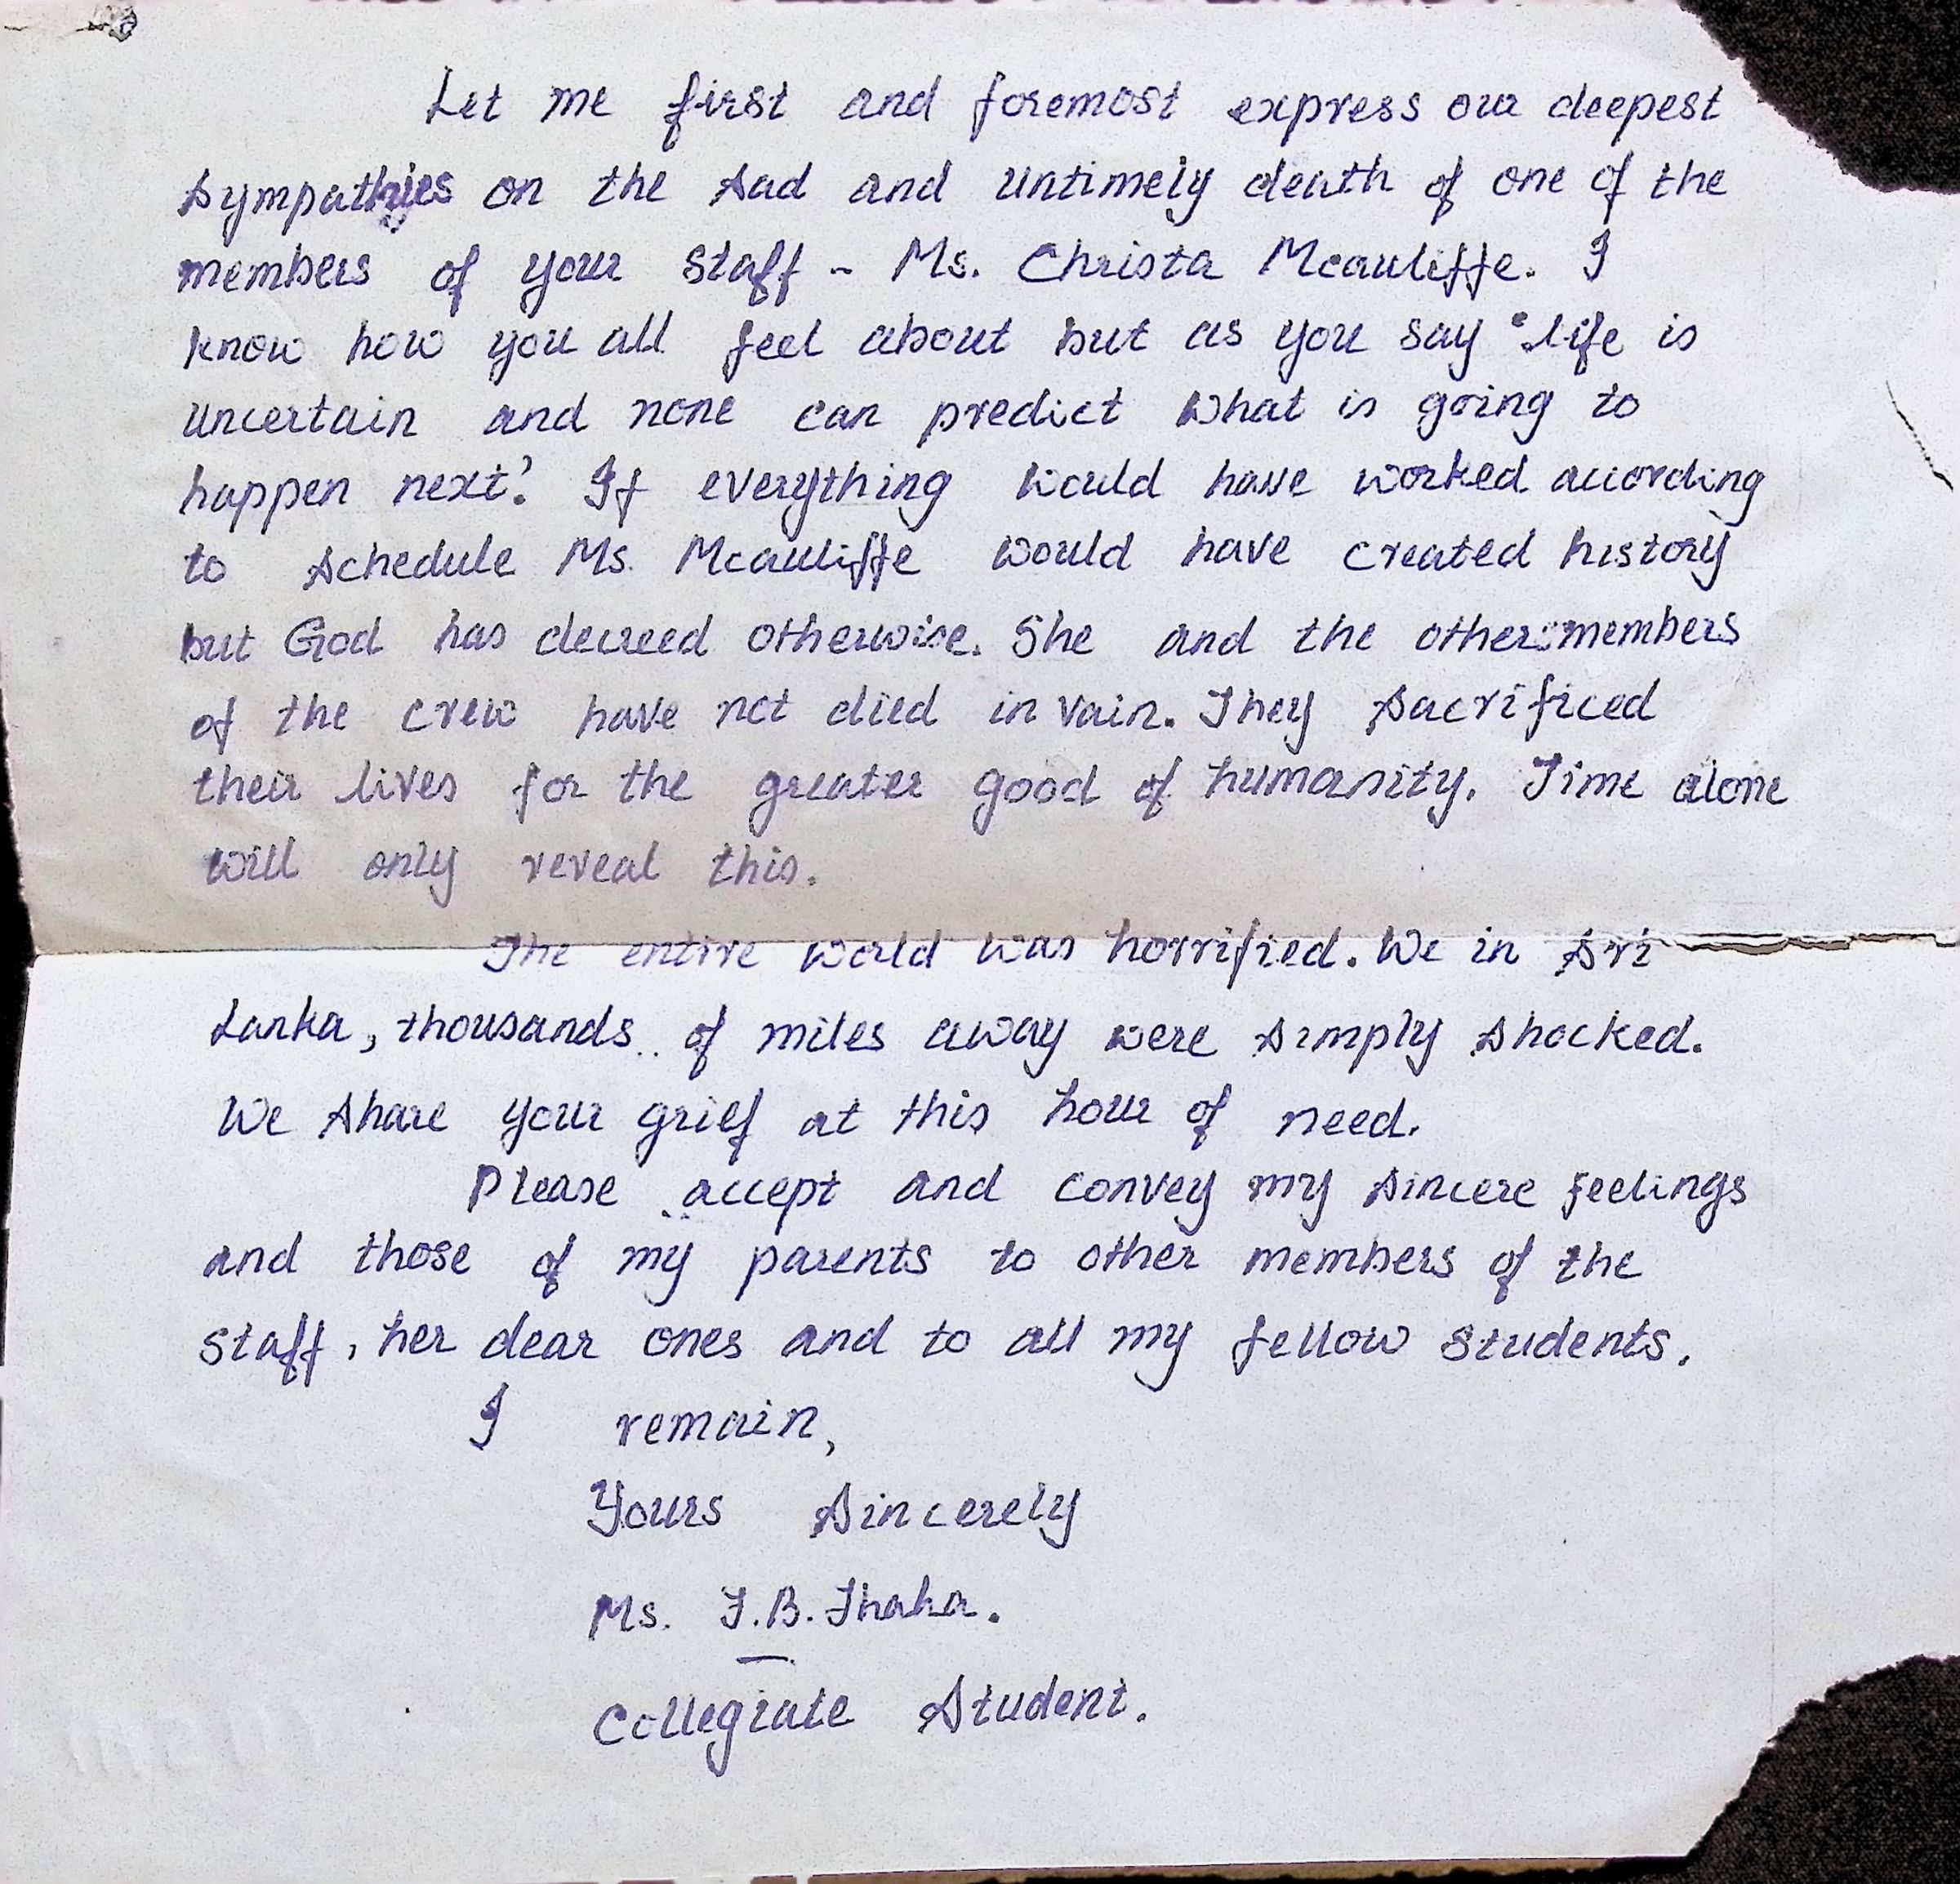 Let me first and foremost express our deepest
sympathies on the sad and untimely death of one of the
members of your staff - Ms. Christa Mcauliffe. I
know how you all feel about but as you say 'life is
uncertain and none can predict what is going to
happen next'. If everything would have worked according
to schedule Ms. Mcauliffe would have created history
but God has decreed otherwise. She and the other members
of the crew have not died in vain. They sacrificed
their lives for the greater good of humanity. Time alone
will only reveal this.
The entire world was horrified. We in Sri
Lanka, thousands of miles away were simply shocked.
We share your grief at this hour of need.
Please accept and convey my sincere feelings
and those of my parents to other members of the
staff, her dear ones and to all my fellow students.
I remain,
Yours Sincerely
Ms. T.B. Thaha.
Collegiate Student.